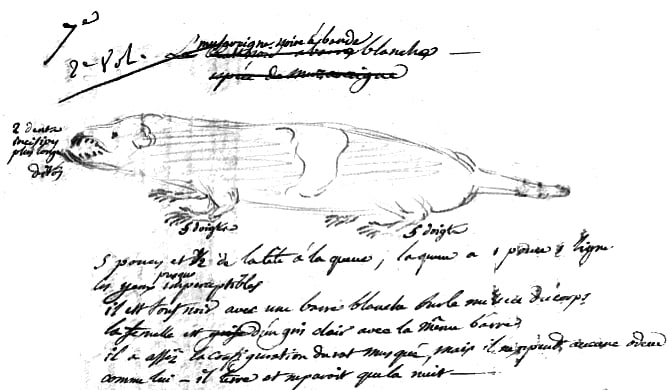 7e
2e Vol.
L' musaraigne noire à bande
blanche —
espèce de musaraigne
2 dents
incisives
plus longues
5 doigts
5 doigts
5 pouces et 1/2 de la tête à la queue, la queue a 1 pouce ligne
presque
les yeux imperceptibles
il est tout noir avec une barre blanche sur le milieu du corps
la femelle est d'un gris clair avec la même barre
il a assez la configuration du rat musqué, mais il aucune odeur
comme lui — il terre et ne paroit que la nuit —